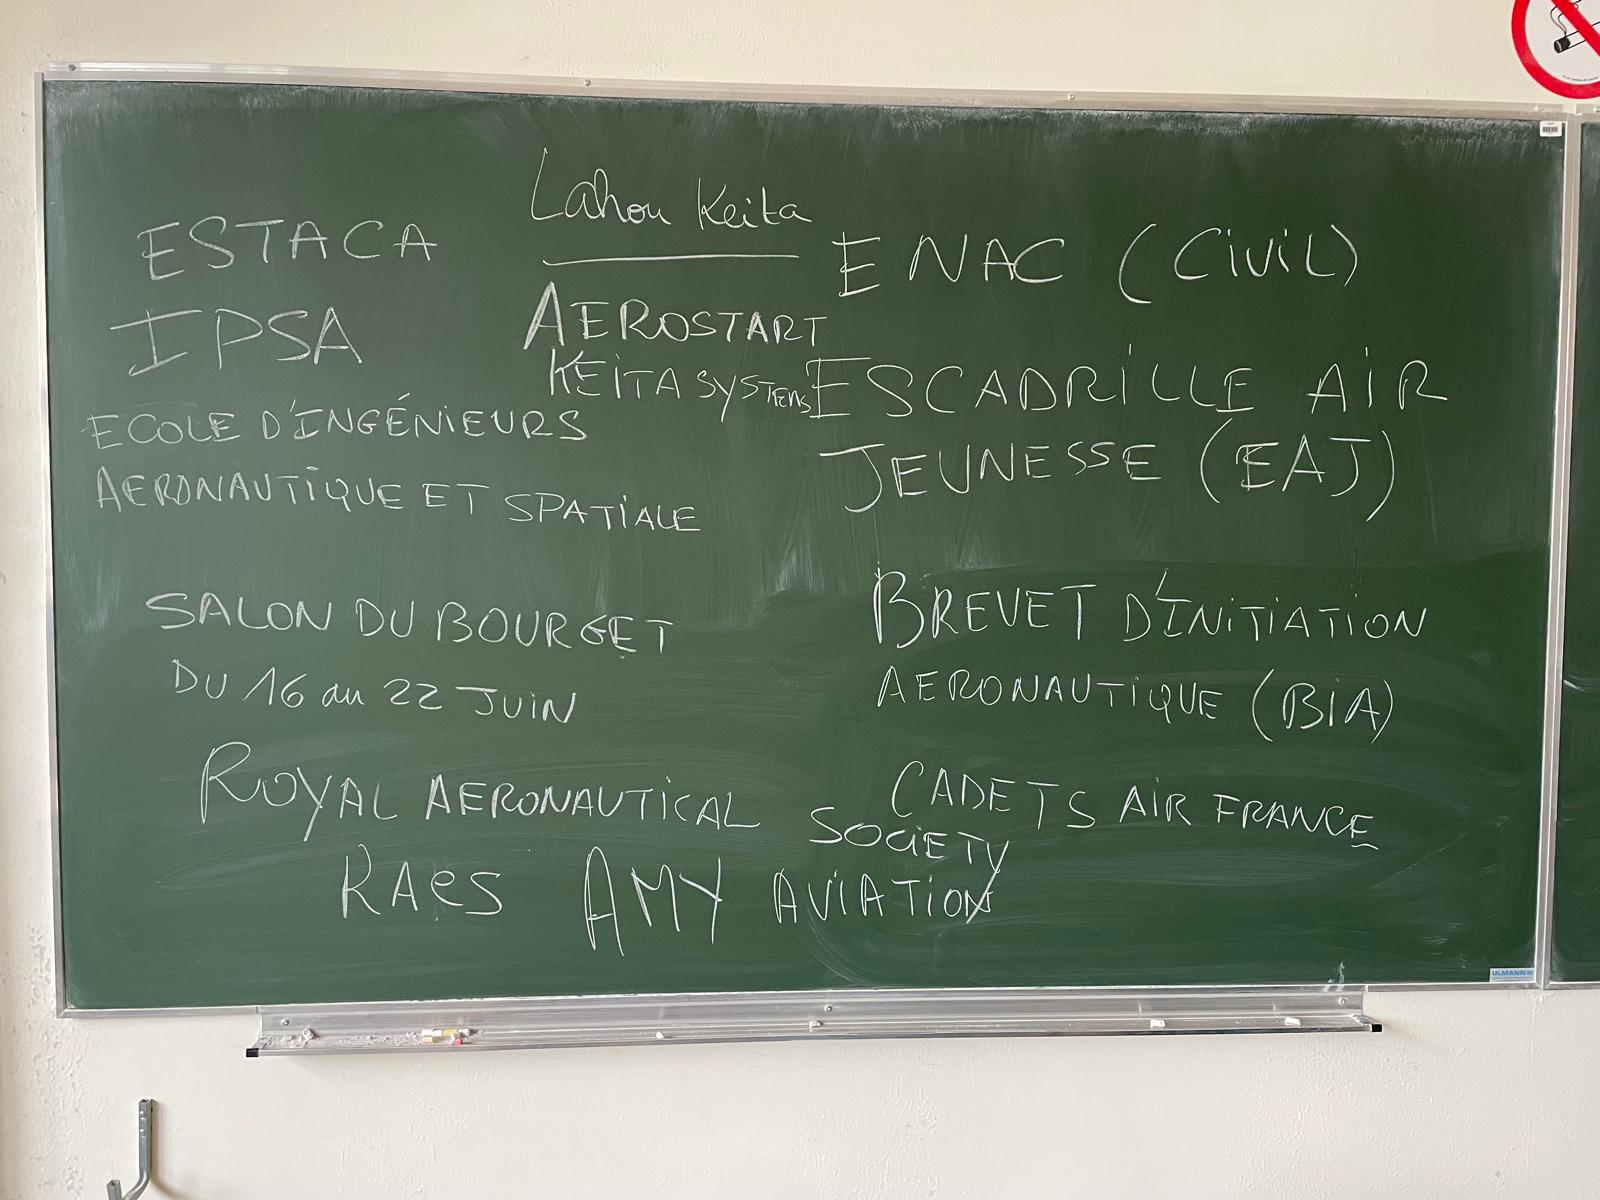 Lahou Keita
ESTACA
IPSA
ECOLE D'INGÉNIEURS
AERONAUTIQUE ET SPATIALE
AEROSTART
KEITA SYSTEMS
ENAC (CIVIL)
ESCADRILLE AIR
JEUNESSE (EAJ)
SALON DU BOURGET
DU 16 au 22 JUIN
BREVET D'INITIATION
AERONAUTIQUE (BIA)
ROYAL AERONAUTICAL SOCIETY
RAeS AMY AVIATION
CADETS AIR FRANCE
ULMANN